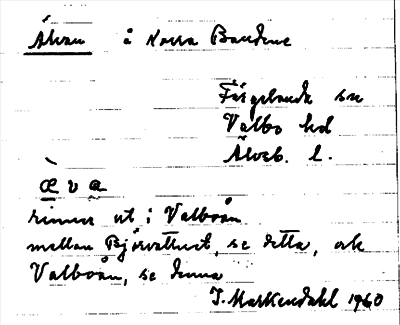 Älvan å Norra Bandene
Färgelanda sn
Valbo hd
Älvsb. l.
æ̀ v a
rinner ut i Valboån
mellan Björvattnet, se detta, och
Valboån, se denna
J. Markendahl 1960